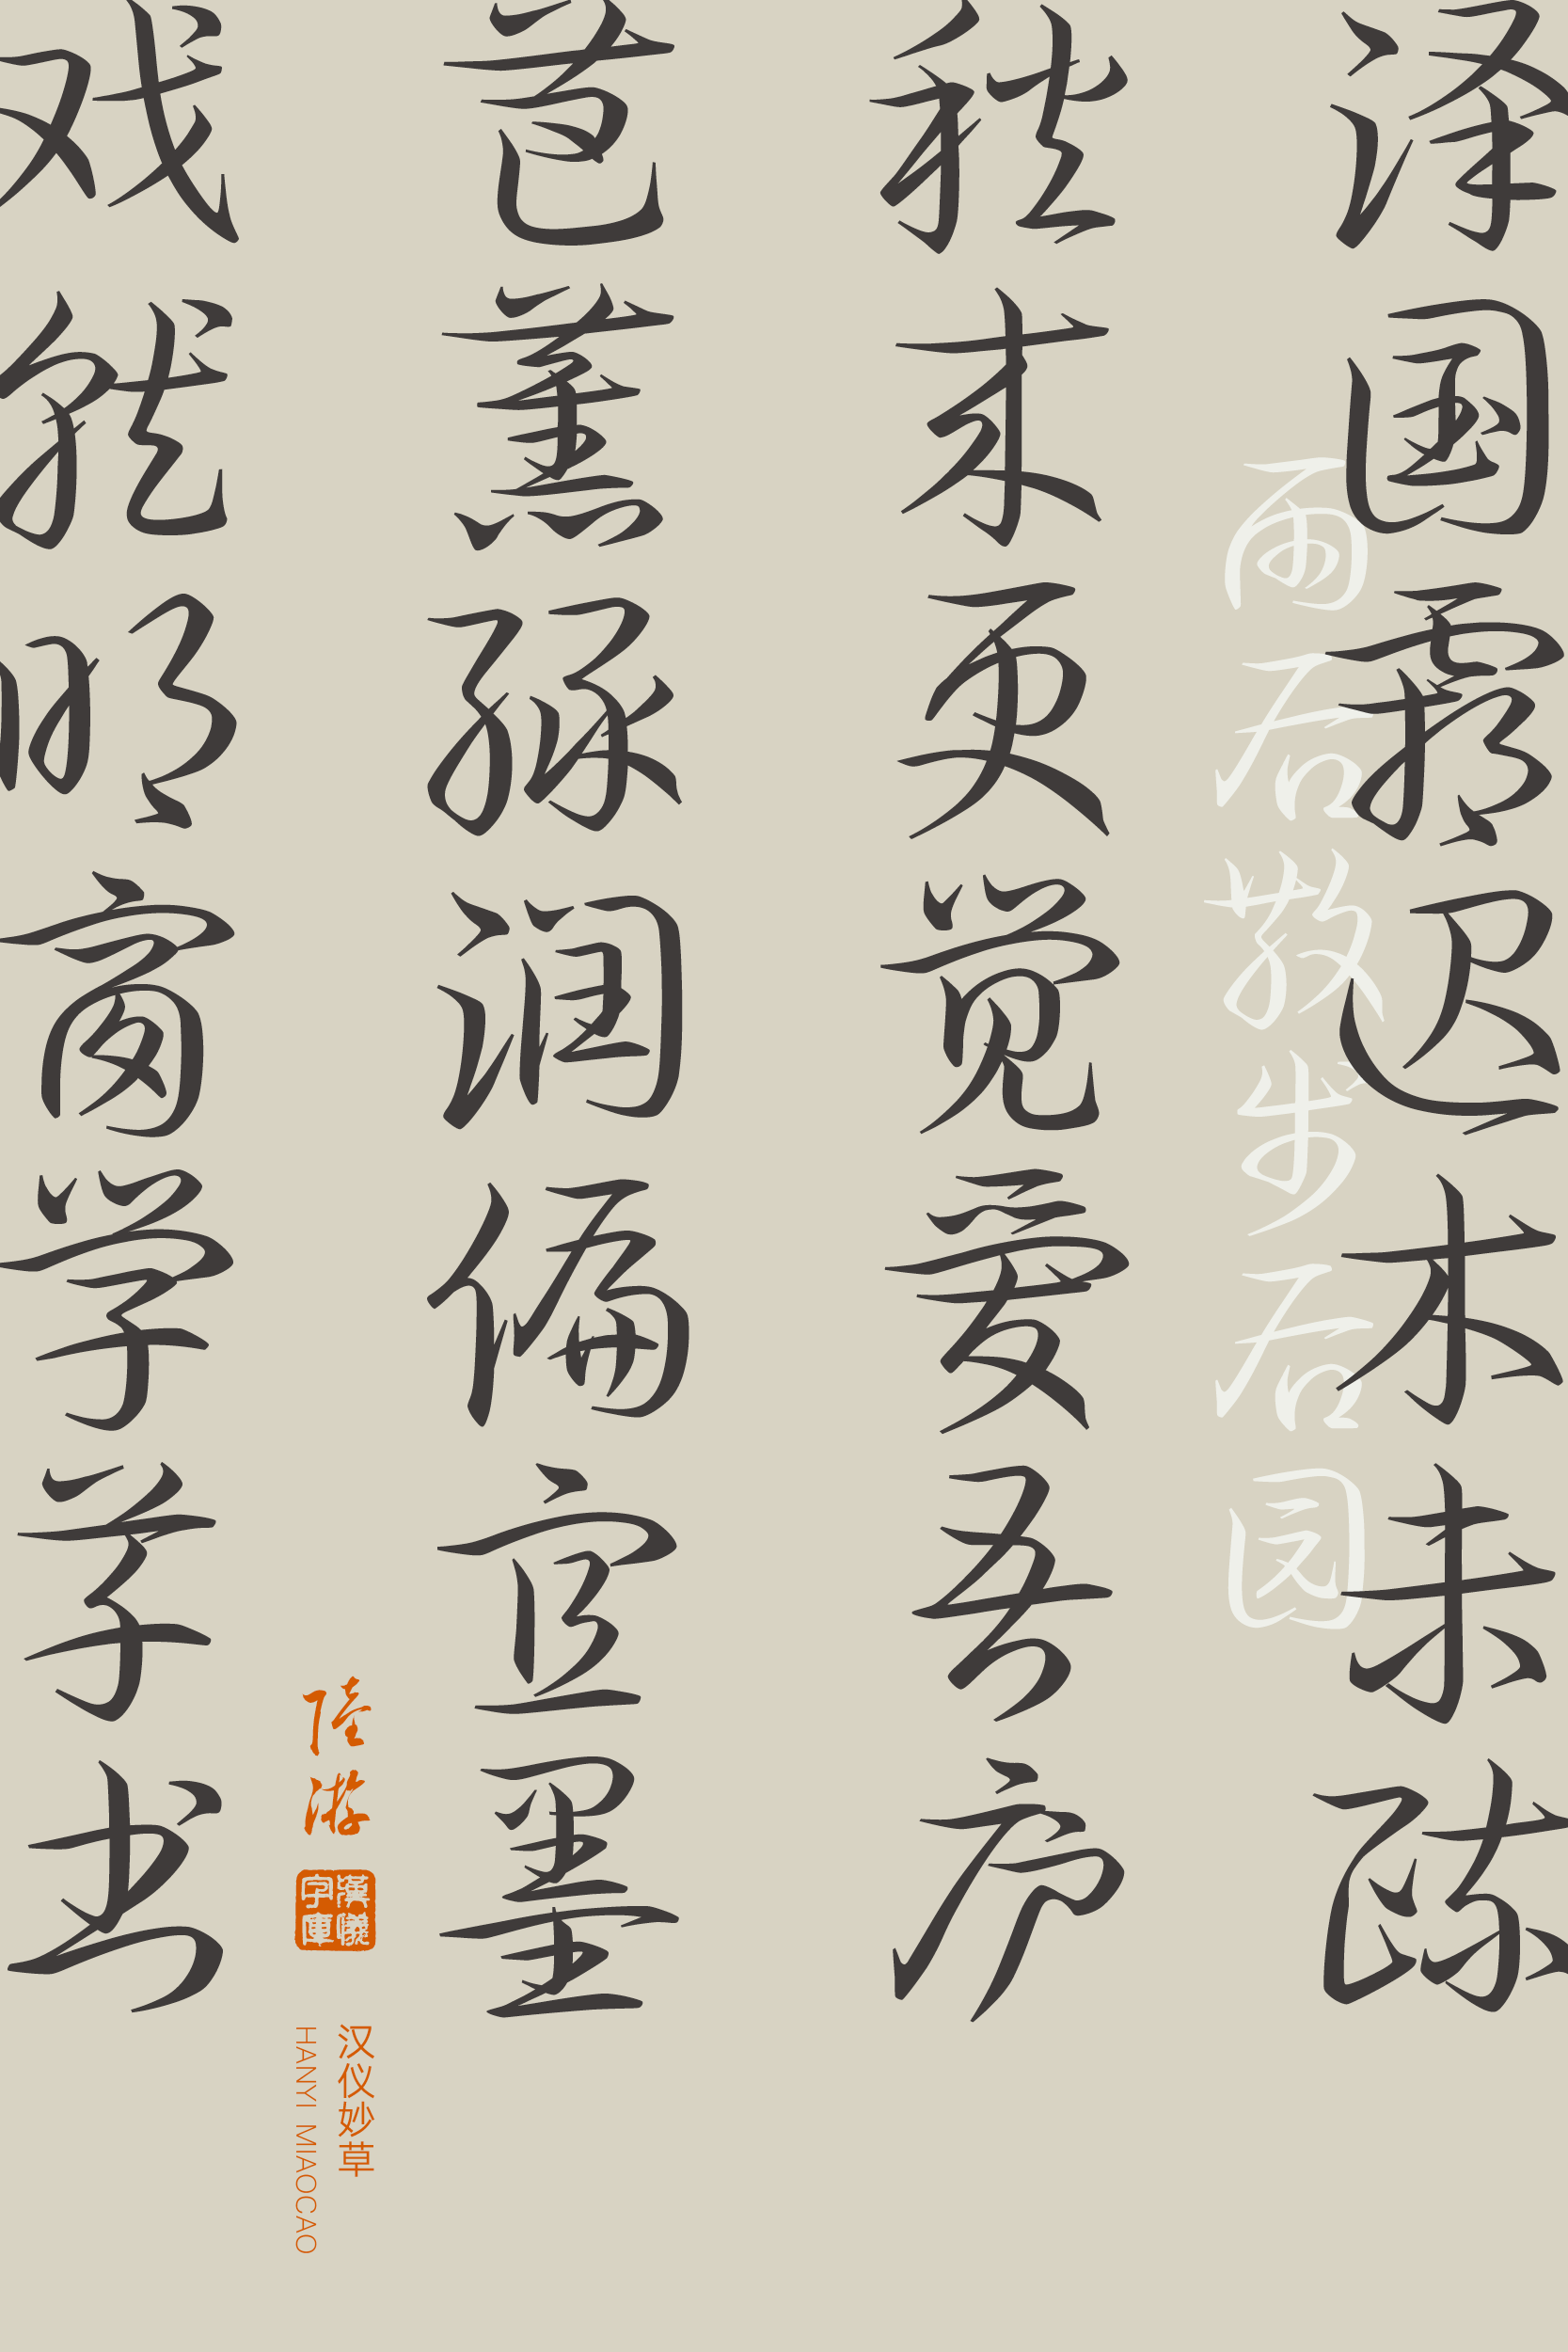 泽国霜迟木未疏
雨后散步后园
秋来更觉爱吾庐
芭蕉绿润偏宜墨
戏就明窗学草书
陆游
漢儀字庫
汉仪妙草
HANYI MIAOCAO